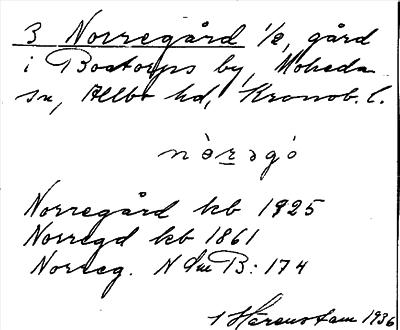 3 Norregård 1/2, gård
i Boatorps by, Moheda
sn, Allbo hd, Kronob. l.
nòrəgò
Norregård kb 1925
Norregd kb 1861
Norreg. N Sm B: 174
1936